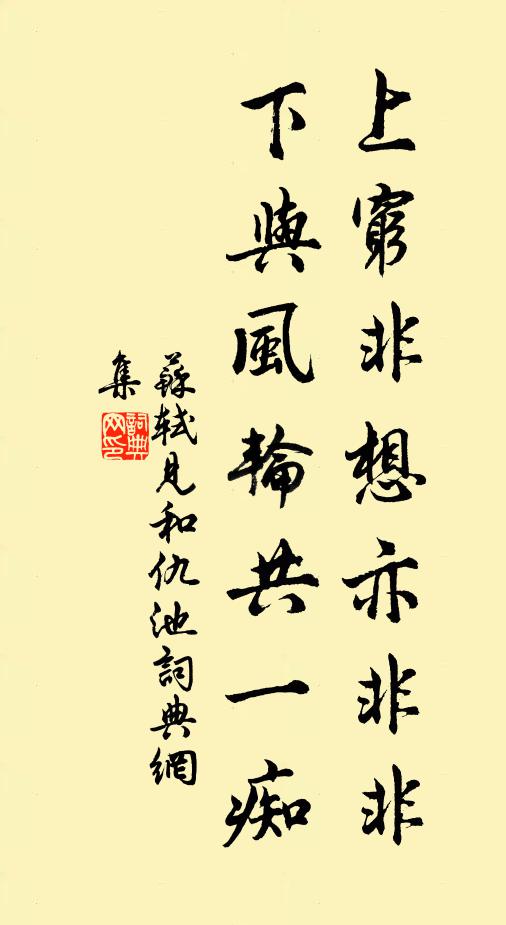 上窮非想亦非非
下與風輪共一痴
蘇軾見和仇池詞典網
集
詞典网印